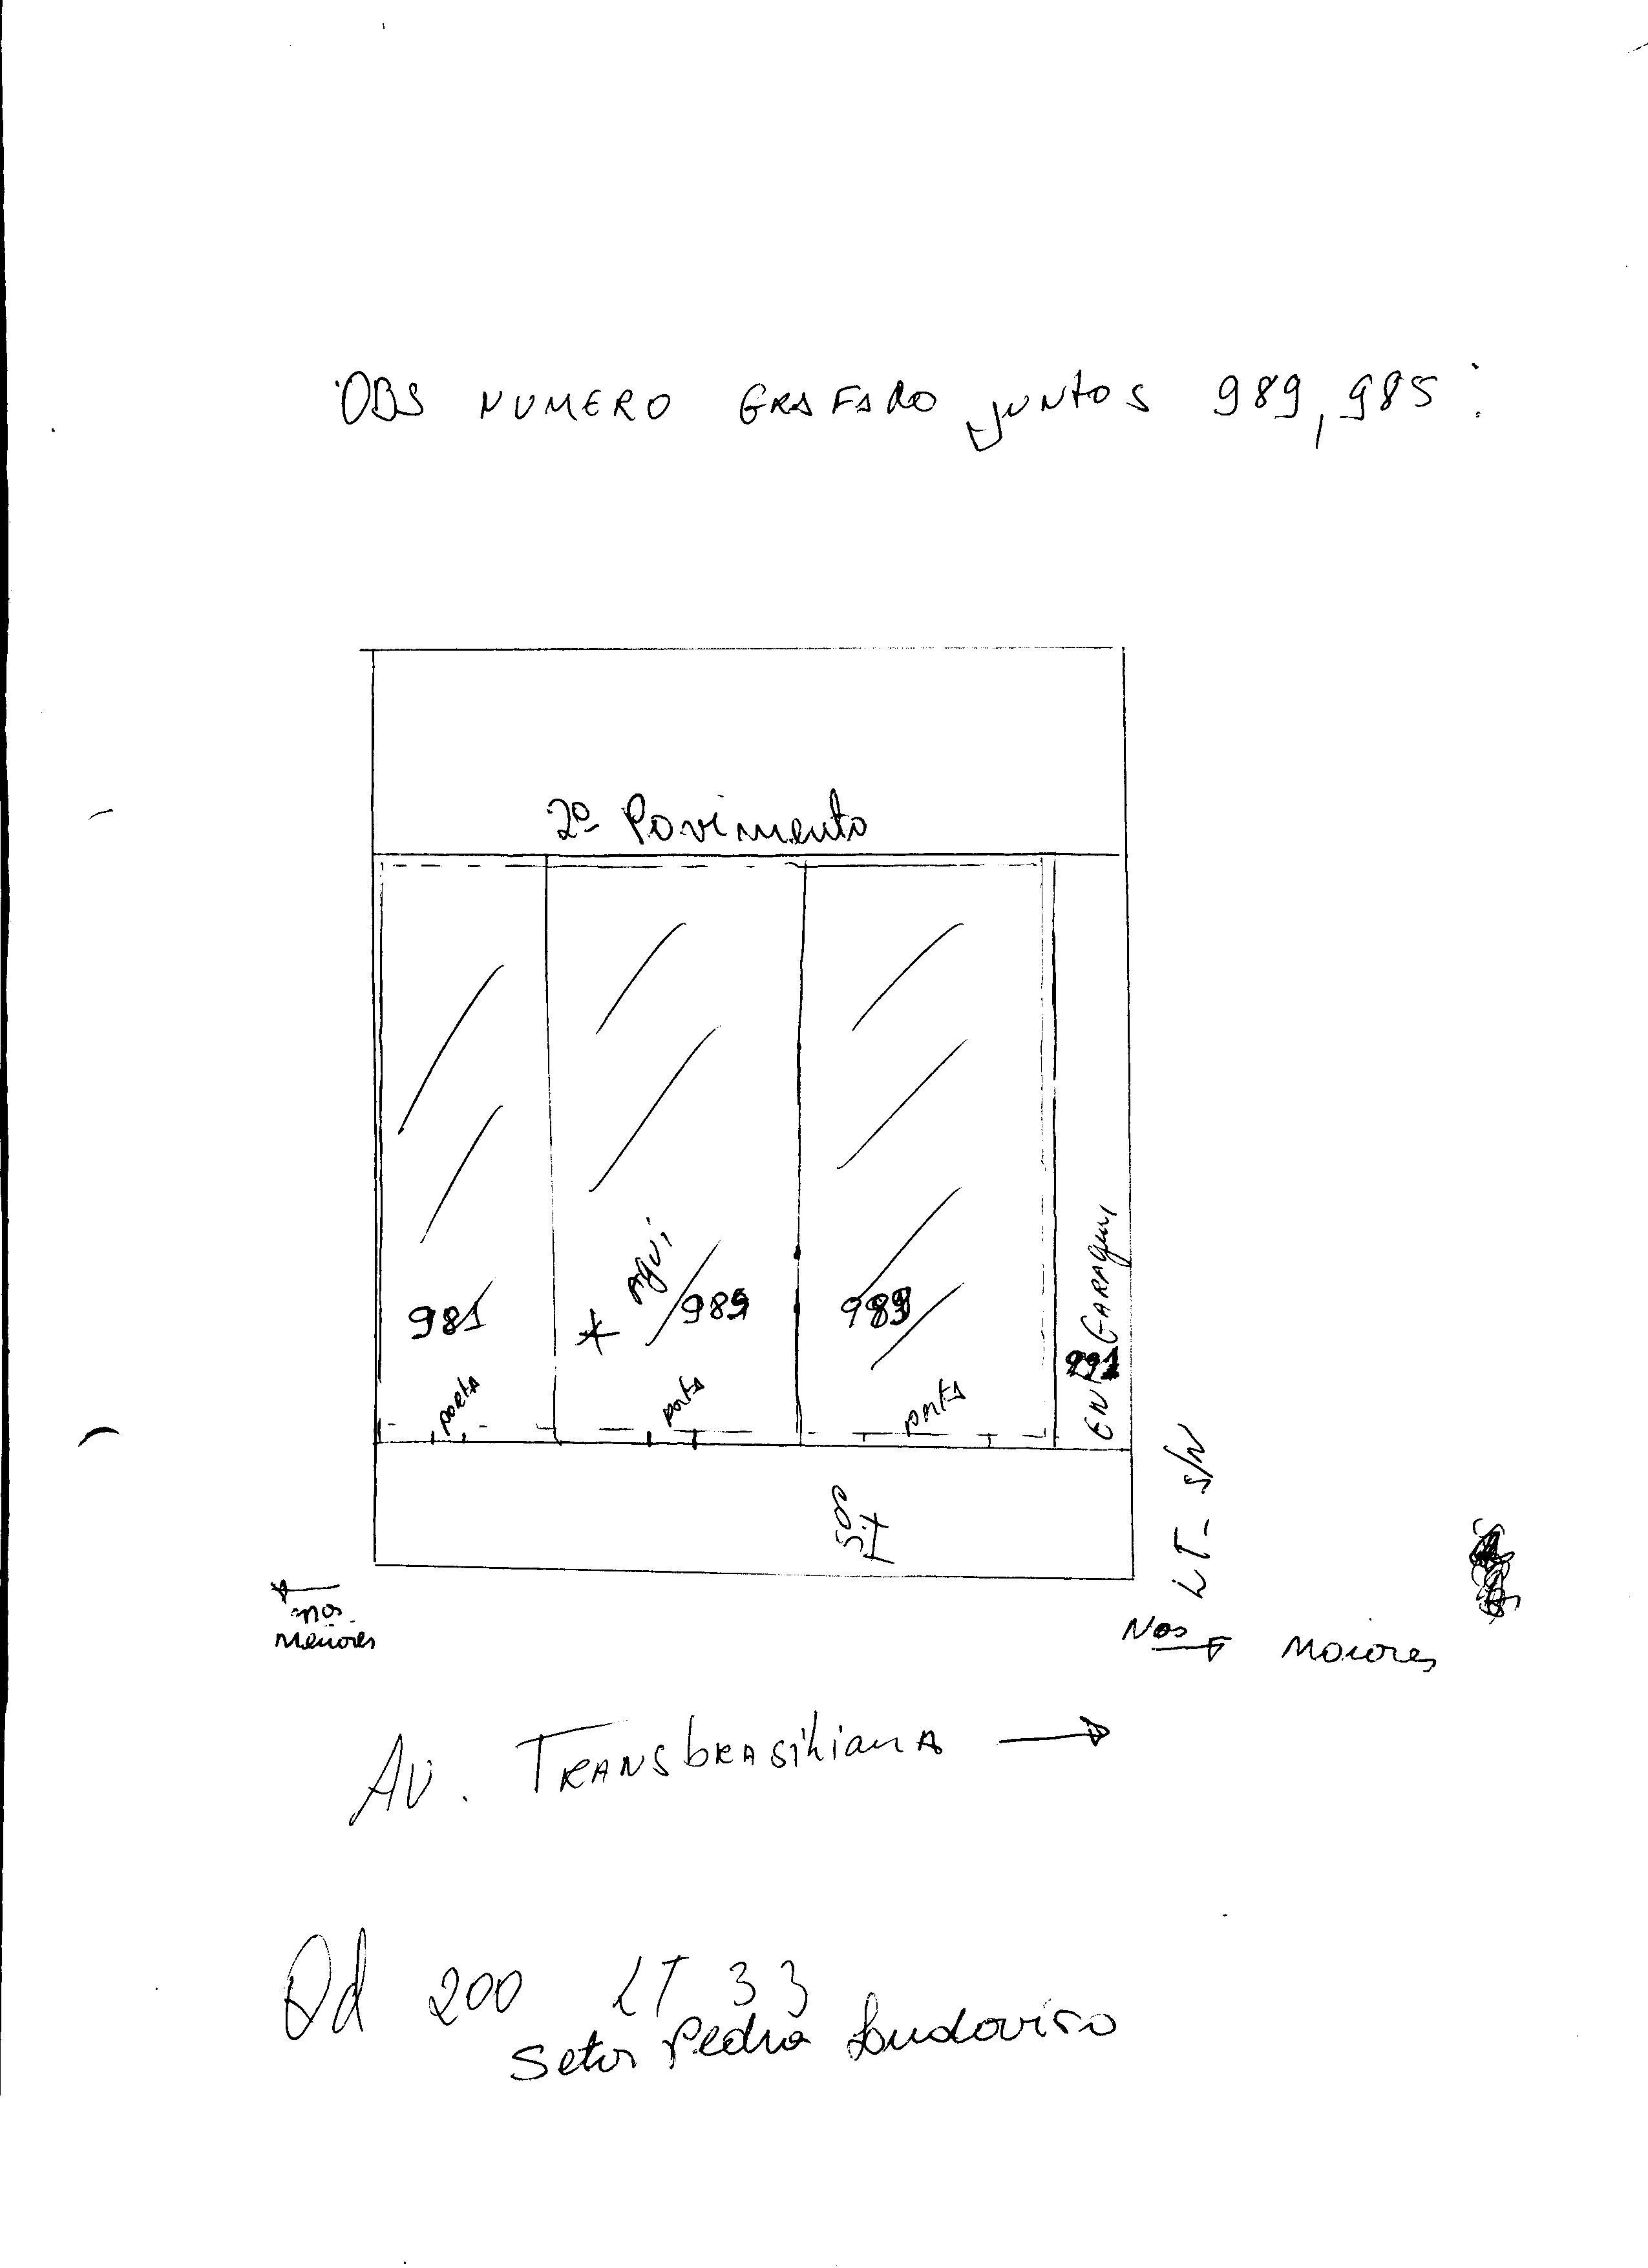 OBS NUMERO GRAFADO juntos 989, 985:
2º Pavimento
AQUI
981 * 985 989
991
ENT GARAGEM
porta porta porta
LT- S/N
nos
Menores
Nos Maiores
AV. TRANSbRASiliANA
Qd 200 LT 33
Setor Pedro Ludovico